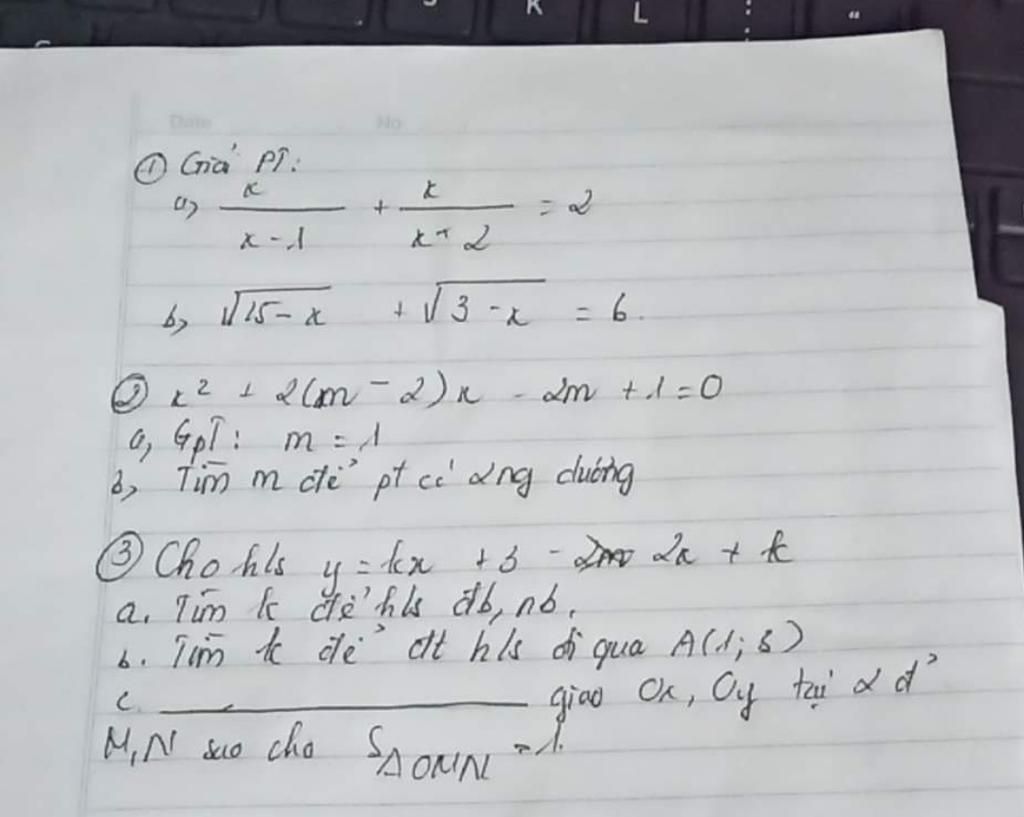 K L
Date No
① Giải PT:
a, x/(x-1) + x/(x+2) = 2
b, √(15-x) + √(3-x) = 6.
② x² + 2(m-2)x - 2m + 1 = 0
a, GPT: m = 1
b, Tìm m để pt có 2 ng dương
③ Cho h/s y = kx + 3 - 2x + k
a. Tìm k để h/s đb, nb.
b. Tìm k để đt h/s đi qua A(1; 3)
c. ________ giao Ox, Oy tại 2 đ'
M, N sao cho S△OMN = 1.